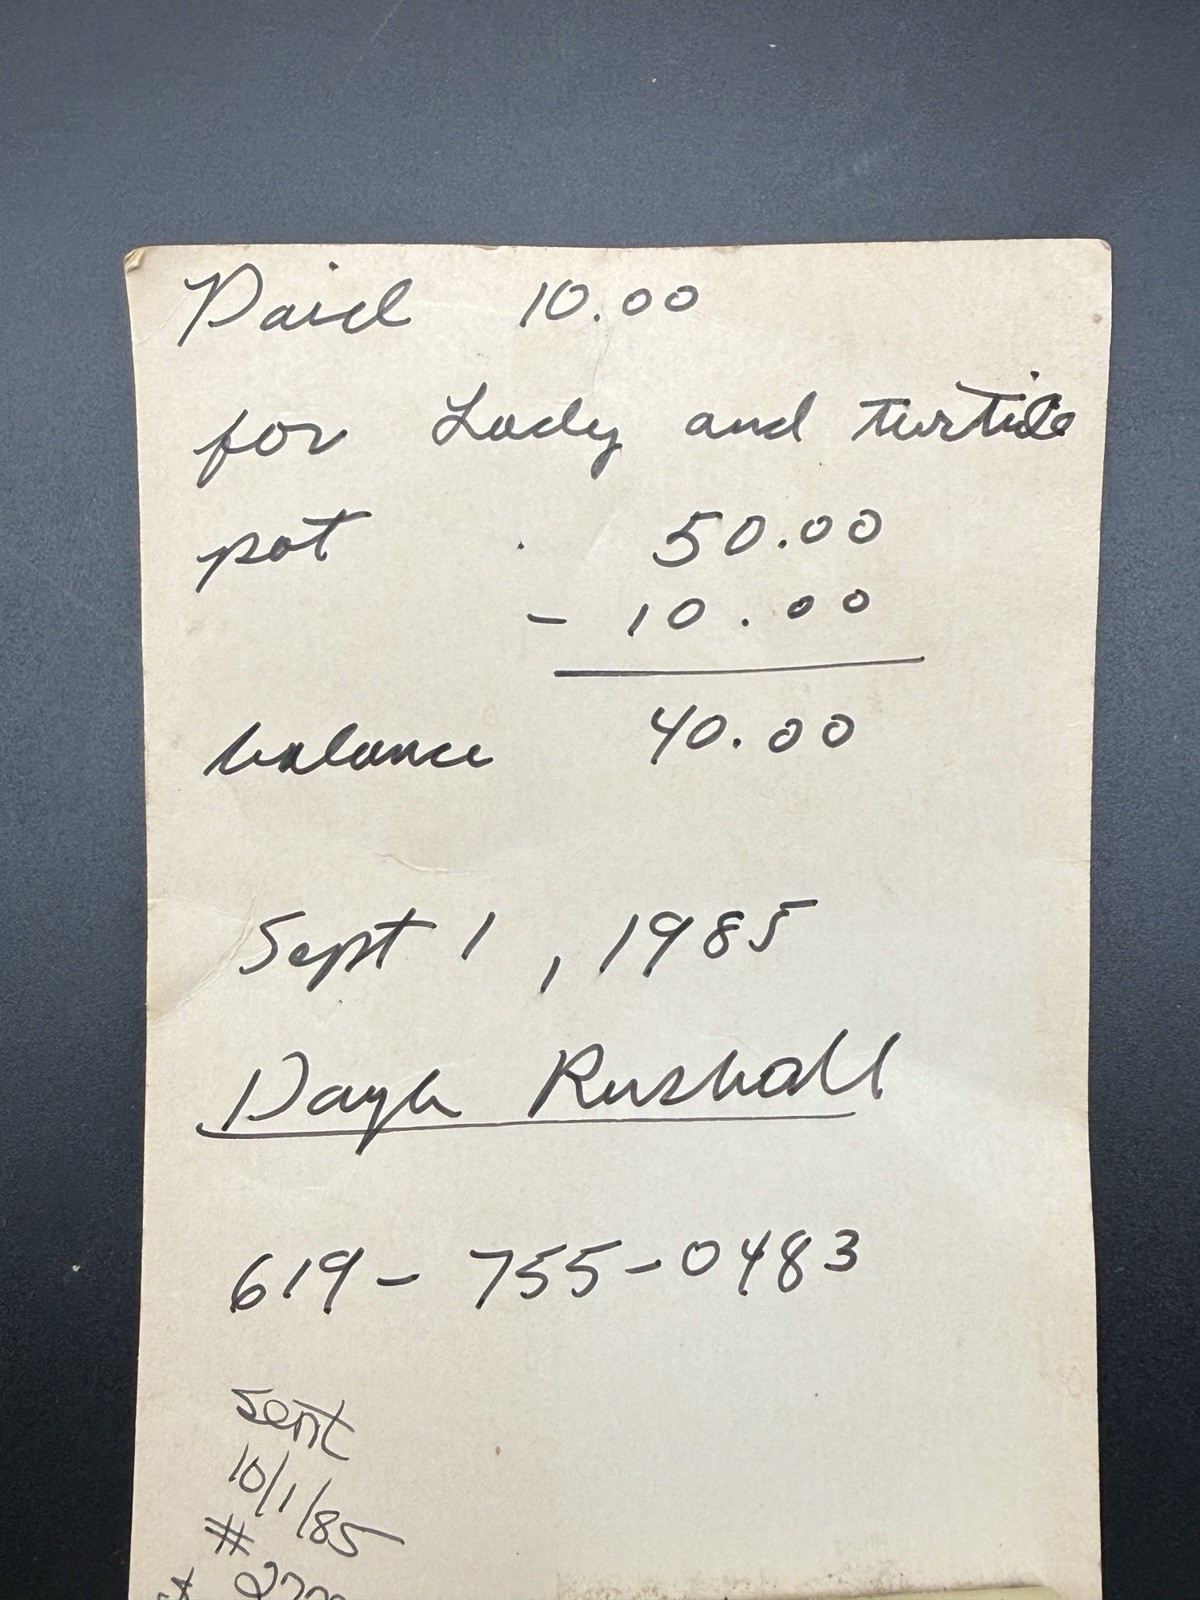 Paid 10.00
for Lady and turtile
pot 50.00
- 10.00
balance 40.00
Sept 1, 1985
Rushall
619-755-0483
sent
10/1/85
#